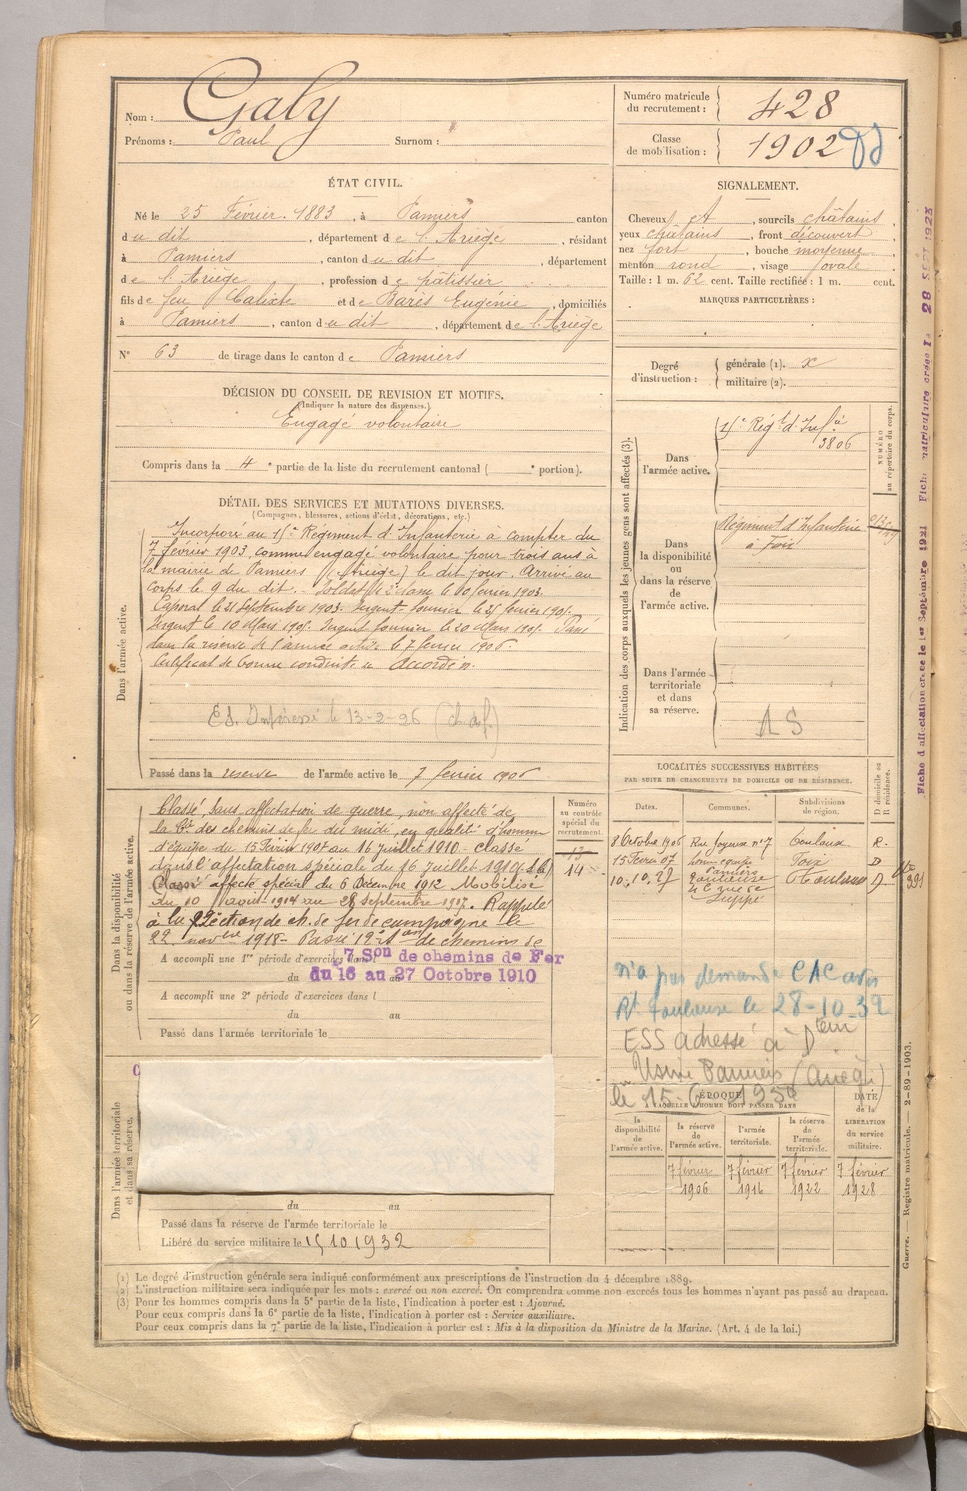 Nom : Galy
Prénoms : Paul Surnom :
Numéro matricule du recrutement : 428
Classe de mobilisation : 1902
ÉTAT CIVIL.
Né le 25 Février 1883, à Pamiers canton
du dit, département de l'Ariège, résidant
à Pamiers, canton du dit, département
de l'Ariège, profession de pâtissier
fils de feu Calixte et de Barès Eugénie, domiciliés
à Pamiers, canton du dit, département de l'Ariège
N° 63 de tirage dans le canton de Pamiers
SIGNALEMENT.
Cheveux et, sourcils châtains,
yeux châtains, front découvert,
nez fort, bouche moyenne,
menton rond, visage ovale
Taille : 1 m. 62 cent. Taille rectifiée : 1 m. cent.
MARQUES PARTICULIÈRES :
Degré d'instruction : générale (1). x
militaire (2).
DÉCISION DU CONSEIL DE REVISION ET MOTIFS.
(Indiquer la nature des dispenses.)
Engagé volontaire
Compris dans la 4e partie de la liste du recrutement cantonal ( e portion).
DÉTAIL DES SERVICES ET MUTATIONS DIVERSES.
(Campagnes, blessures, actions d'éclat, décorations, etc.)
Dans l'armée active.
Incorporé au Régiment d'Infanterie à compter du
7 février 1903, comme engagé volontaire pour trois ans à
la mairie de Pamiers (Ariège) le dit jour. Arrivé au
corps le 9 du dit. Soldat de 2e classe le février 1903.
Caporal le 21 septembre 1903. Sergent fourrier le
Sergent le 10 Mars Sergent fourrier le 20 Mars Passé
dans la réserve de l'armée active le 7 février 1906.
Certificat de bonne conduite accordé
le 13-2-26
Passé dans la réserve de l'armée active le 7 février 1906
Indication des corps auxquels les jeunes gens sont affectés (3).
NUMÉRO au répertoire du corps.
Dans l'armée active.
Régt d'Infie
3806
Dans la disponibilité ou dans la réserve de l'armée active.
Régiment d'Infanterie
à Foix
Dans l'armée territoriale et dans sa réserve.
LOCALITÉS SUCCESSIVES HABITÉES
PAR SUITE DE CHANGEMENTS DE DOMICILE OU DE RÉSIDENCE.
Dates. Communes. Subdivisions de région. D domicile ou R résidence.
8 Octobre 1906 Rue n° 7 Toulouse R.
15 Févr 07 Pamiers Foix D
10.10.27 Toulouse Toulouse D
Dans la disponibilité ou dans la réserve de l'armée active.
Numéro au contrôle spécial du recrutement.
13
14
Classé sans affectation de guerre, non affecté de
la Cie des chemins de fer du midi, en qualité d'homme
d'équipe du 15 Février 1907 au 16 juillet 1910 - Classé
dans l'affectation spéciale du 16 Juillet 1910
Classé affecté spécial du 6 Décembre 1912 Mobilisé
du 10 au 28 septembre Rappelé
à la Section de ch. de fer de campagne le
22 novbre 1918 - Passé de chemins de
A accompli une 1re période d'exercices dans l
7 Son de chemins de Fer
du 16 au 27 Octobre 1910
A accompli une 2e période d'exercices dans l
du au
Passé dans l'armée territoriale le
n'a pas demandé CAC
Rt Toulouse le 28-10-32
ESS adressé à
Usine Pamiers (Ariège)
le 15-6-
Dans l'armée territoriale et dans sa réserve.
du au
Passé dans la réserve de l'armée territoriale le
Libéré du service militaire le 15 10 1932
ÉPOQUE
À LAQUELLE L'HOMME DOIT PASSER DANS
DATE de la LIBÉRATION du service militaire.
la disponibilité de l'armée active.
la réserve de l'armée active.
l'armée territoriale.
la réserve de l'armée territoriale.
7 février 1906
7 février 1916
7 février 1922
7 février 1928
(1) Le degré d'instruction générale sera indiqué conformément aux prescriptions de l'instruction du 4 décembre 1889.
(2) L'instruction militaire sera indiquée par les mots : exercé ou non exercé. On comprendra comme non exercés tous les hommes n'ayant pas passé au drapeau.
(3) Pour les hommes compris dans la 5e partie de la liste, l'indication à porter est : Ajourné.
Pour ceux compris dans la 6e partie de la liste, l'indication à porter est : Service auxiliaire.
Pour ceux compris dans la 7e partie de la liste, l'indication à porter est : Mis à la disposition du Ministre de la Marine. (Art. 4 de la loi.)
Guerre. — Registre matricule. — 2-89-1903.
Fiche d'affectation créée le 1er Septembre 1921
Fiche matriculaire créée le 28 SEPT 1923